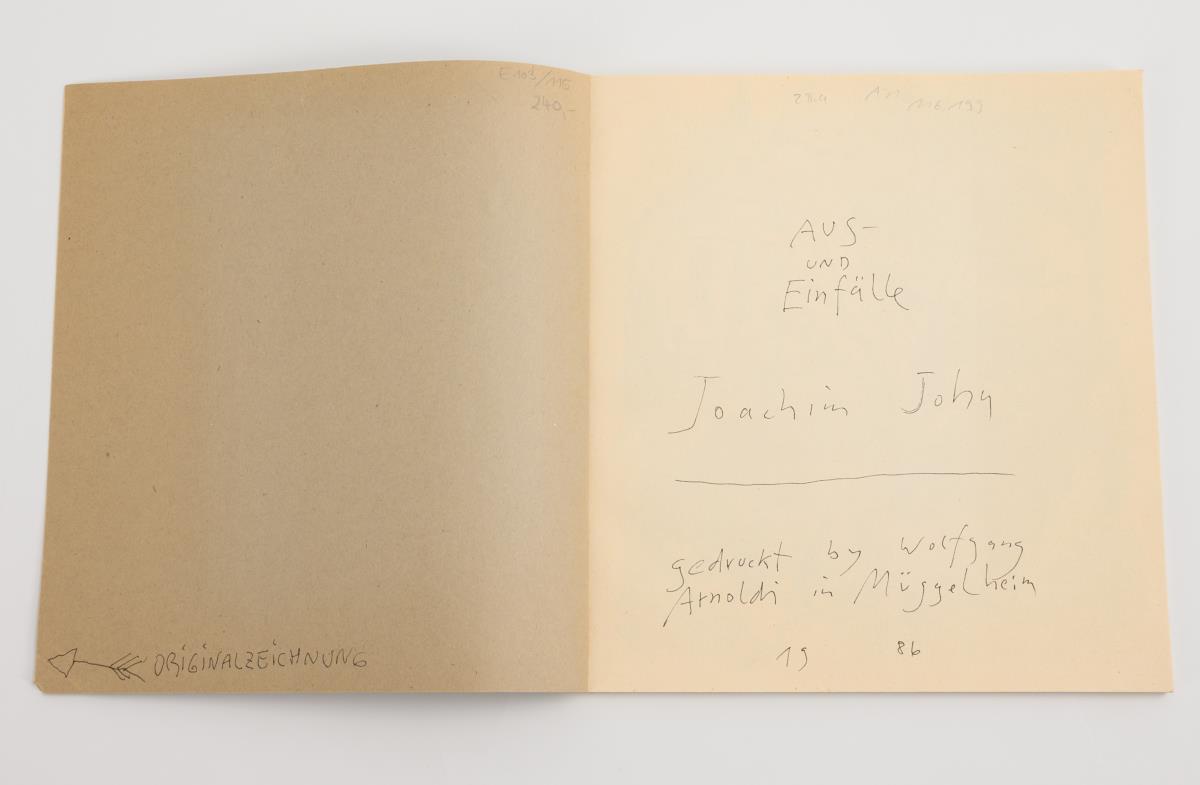 E 103/116
240,-
ORIGINALZEICHNUNG
AUS-
UND
Einfälle
Joachim John
gedruckt by Wolfgang
Arnoldi in Müggelheim
19 86